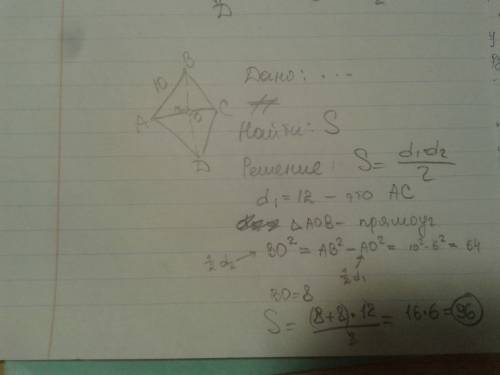 B
10
A
O
C
D
Дано: ...
Найти: S
Решение: S = d₁d₂/2
d₁ = 12 – это AC
△AOB – прямоуг
½d₂ → BO² = AB² – AO² = 10² - 6² = 64
½d₁
BO = 8
S = (8+8)·12/2 = 16·6 = 96